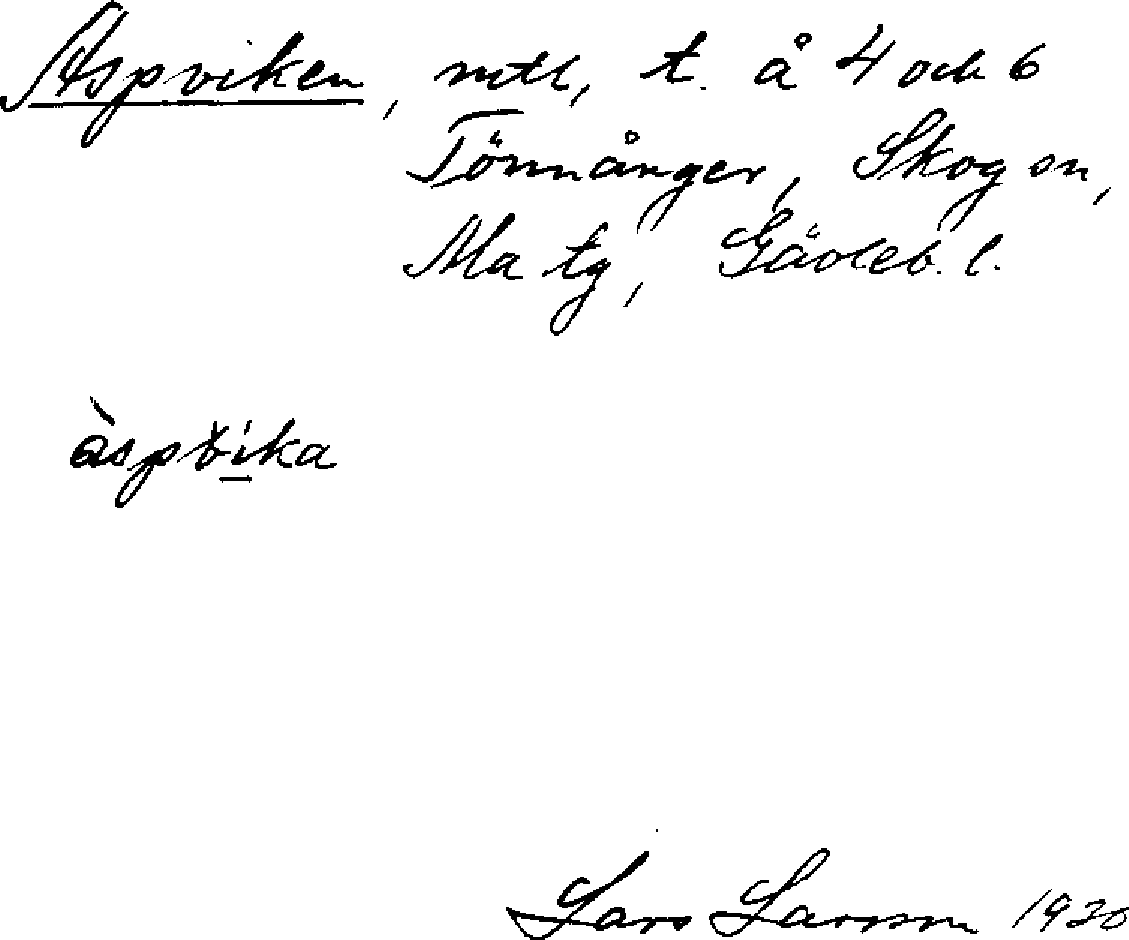 Aspviken, mtl, t. å 4 och 6
Tönnånger, Skog sn,
Ala tg, Gävleb. l.
àspvika
Lars Larsson 1930